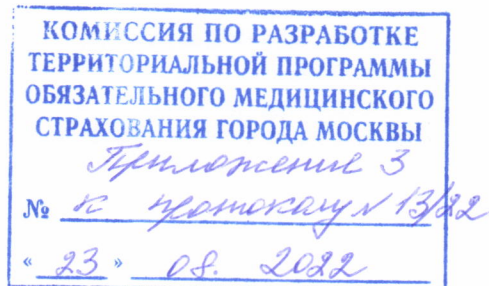 КОМИССИЯ ПО РАЗРАБОТКЕ
ТЕРРИТОРИАЛЬНОЙ ПРОГРАММЫ
ОБЯЗАТЕЛЬНОГО МЕДИЦИНСКОГО
СТРАХОВАНИЯ ГОРОДА МОСКВЫ
Приложение 3
№ к протоколу № 13/22
« 23 » 08. 2022